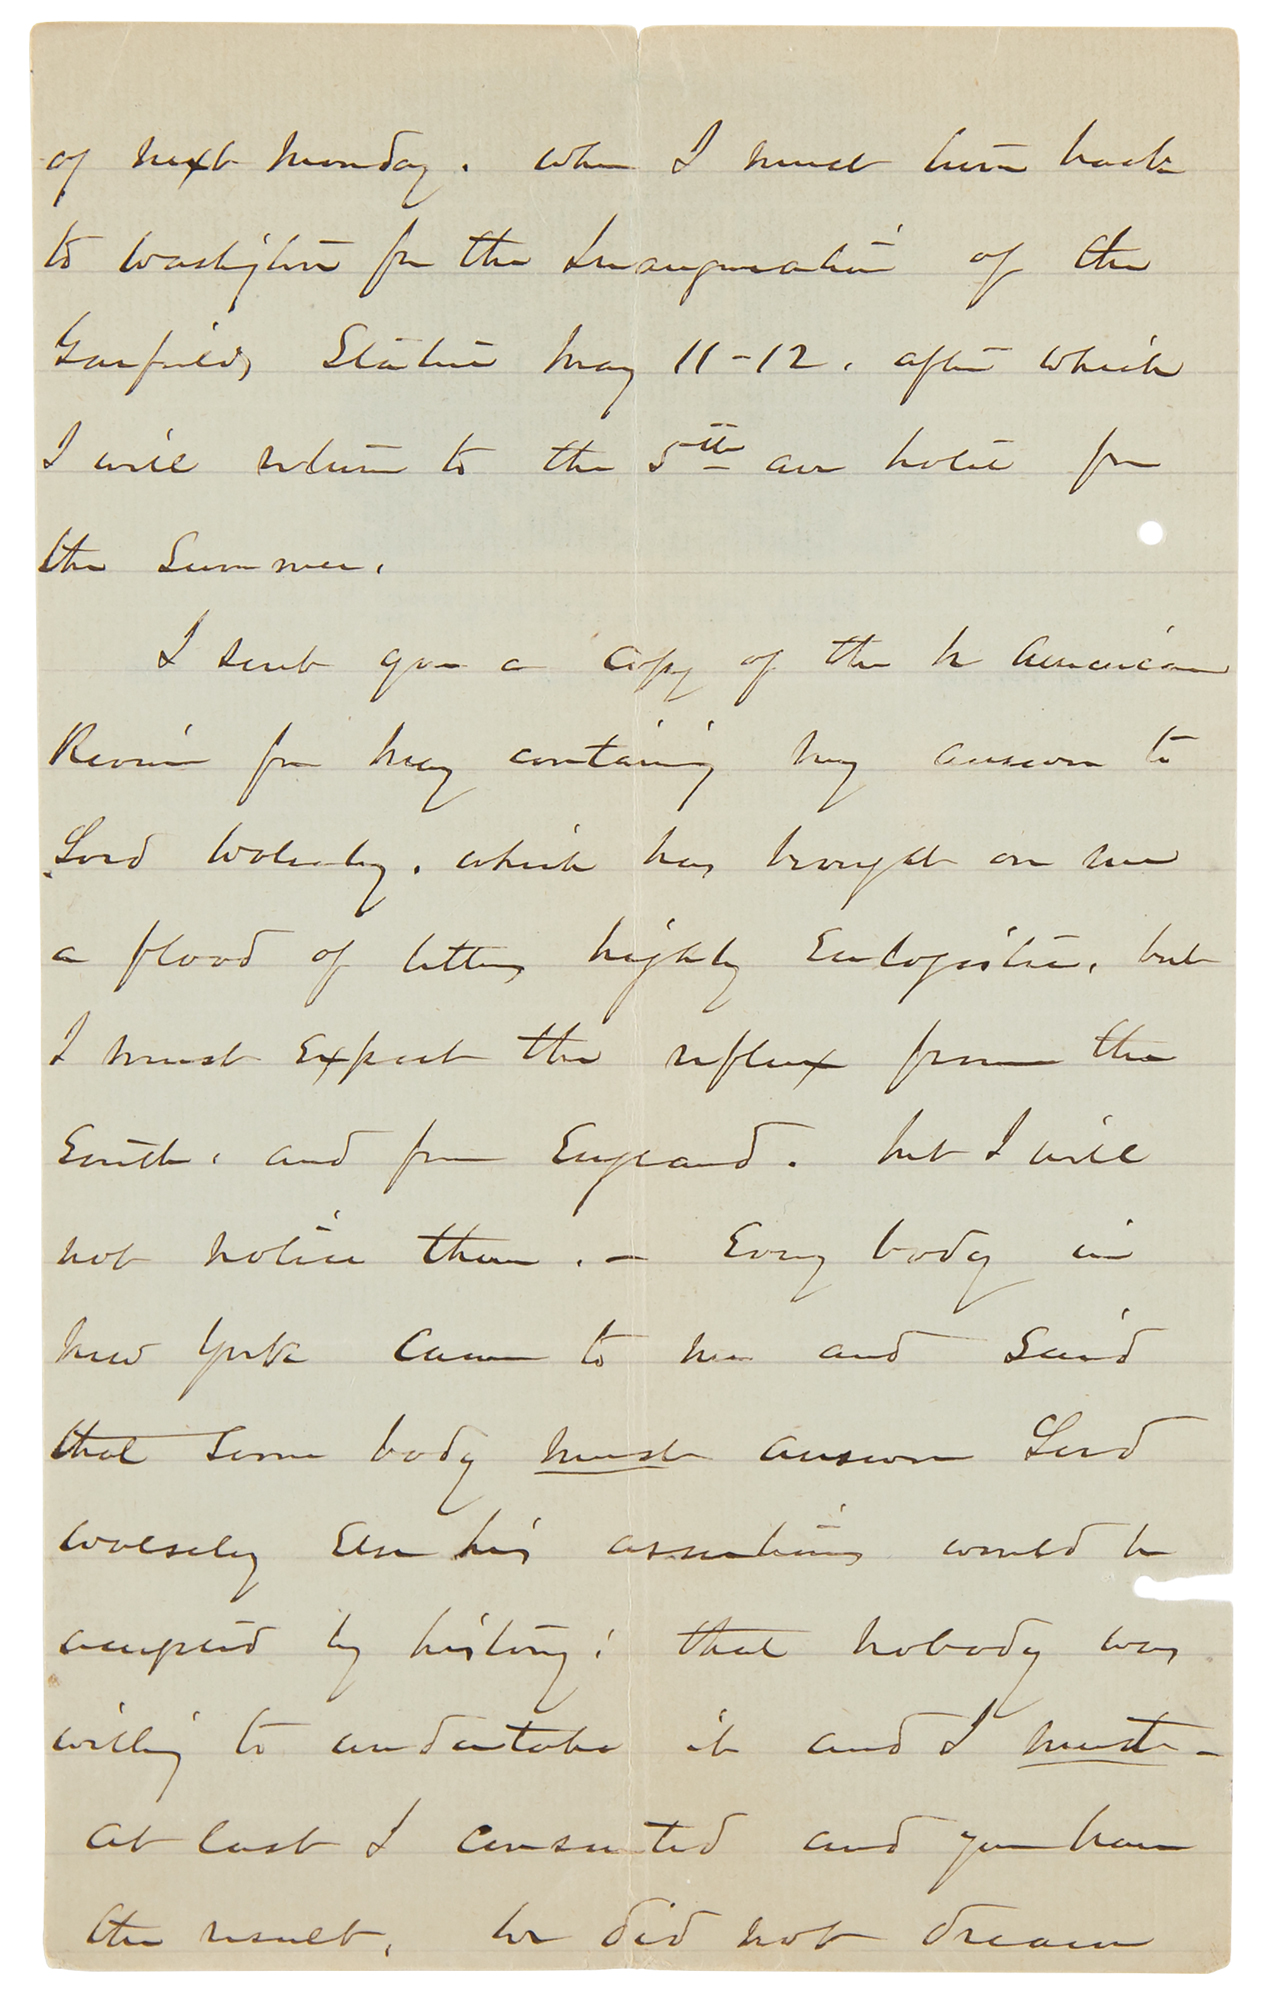 of next Monday. when I must turn back
to Washington for the Inauguration of the
Garfield Statue May 11-12. after which
I will return to the 5th ave hotel for
the Summer.
I sent you a copy of the N American
Review for May containing my answer to
Lord Wolseley. which has brought on me
a flood of letters highly Eulogistic, but
I must Expect the reflux from the
South, and from England. but I will
not notice them. — Every body in
New York came to me and Said
that Some body must answer Lord
Wolseley Else his assertions would be
accepted by history; that nobody was
willing to undertake it and I must -
at last I consented and you have
the result. We did not dream